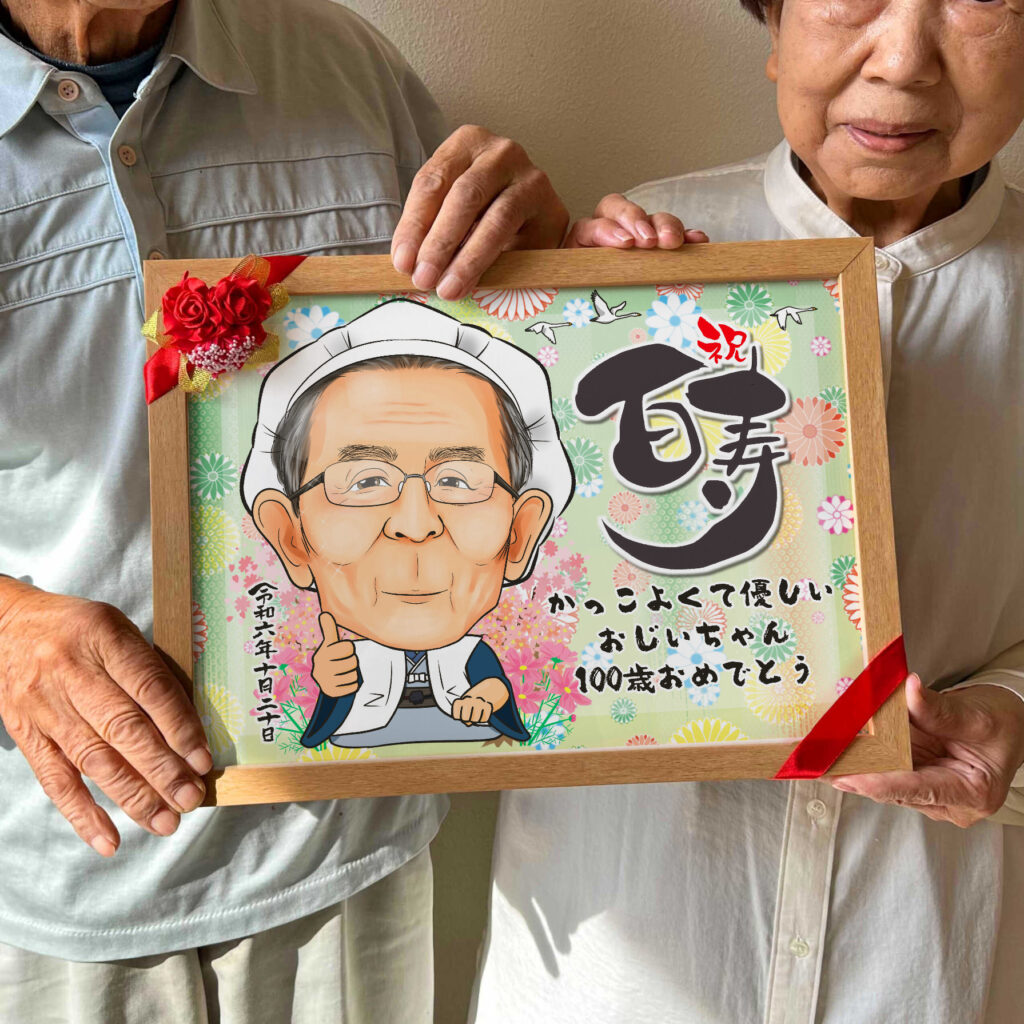 祝
百寿
かっこよくて優しい
おじいちゃん
100歳おめでとう
令和六年十月二十日